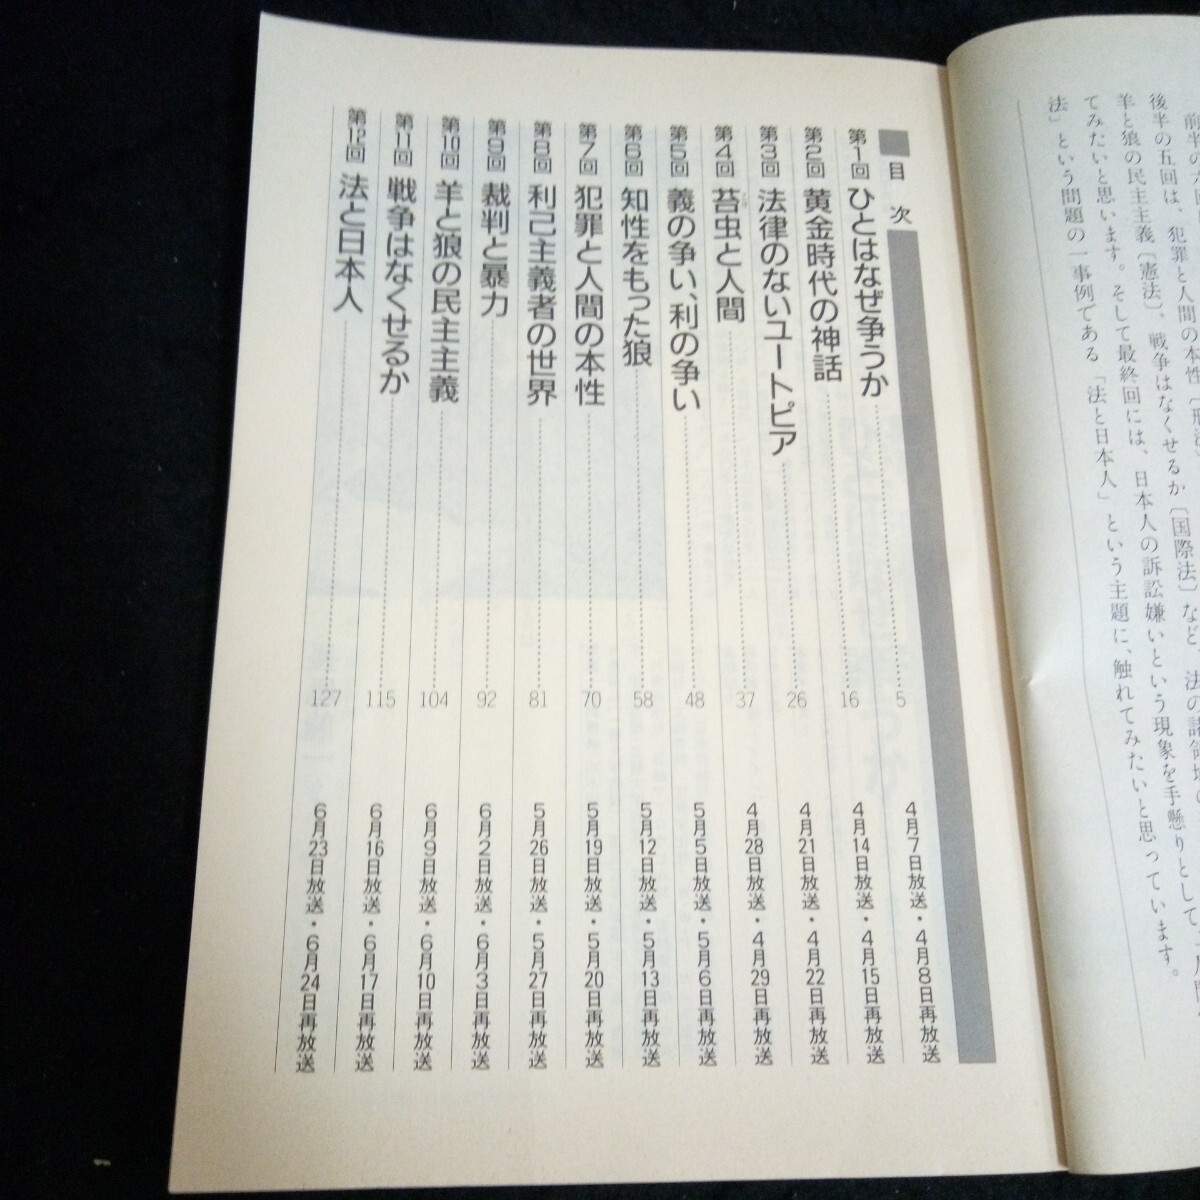 後半の五回は、犯罪と人間の本性〔刑法〕
羊と狼の民主主義〔憲法〕、戦争はなくせるか〔国際法〕など、法の諸領域
てみたいと思います。そして最終回には、日本人の訴訟嫌いという現象を手懸りとして、
法」という問題の一事例である「法と日本人」という主題に、触れてみたいと思っています。
目次
第1回 ひとはなぜ争うか 5 4月7日放送・4月8日再放送
第2回 黄金時代の神話 16 4月14日放送・4月15日再放送
第3回 法律のないユートピア 26 4月21日放送・4月22日再放送
第4回 苔虫と人間 37 4月28日放送・4月29日再放送
第5回 義の争い、利の争い 48 5月5日放送・5月6日再放送
第6回 知性をもった狼 58 5月12日放送・5月13日再放送
第7回 犯罪と人間の本性 70 5月19日放送・5月20日再放送
第8回 利己主義者の世界 81 5月26日放送・5月27日再放送
第9回 裁判と暴力 92 6月2日放送・6月3日再放送
第10回 羊と狼の民主主義 104 6月9日放送・6月10日再放送
第11回 戦争はなくせるか 115 6月16日放送・6月17日再放送
第12回 法と日本人 127 6月23日放送・6月24日再放送